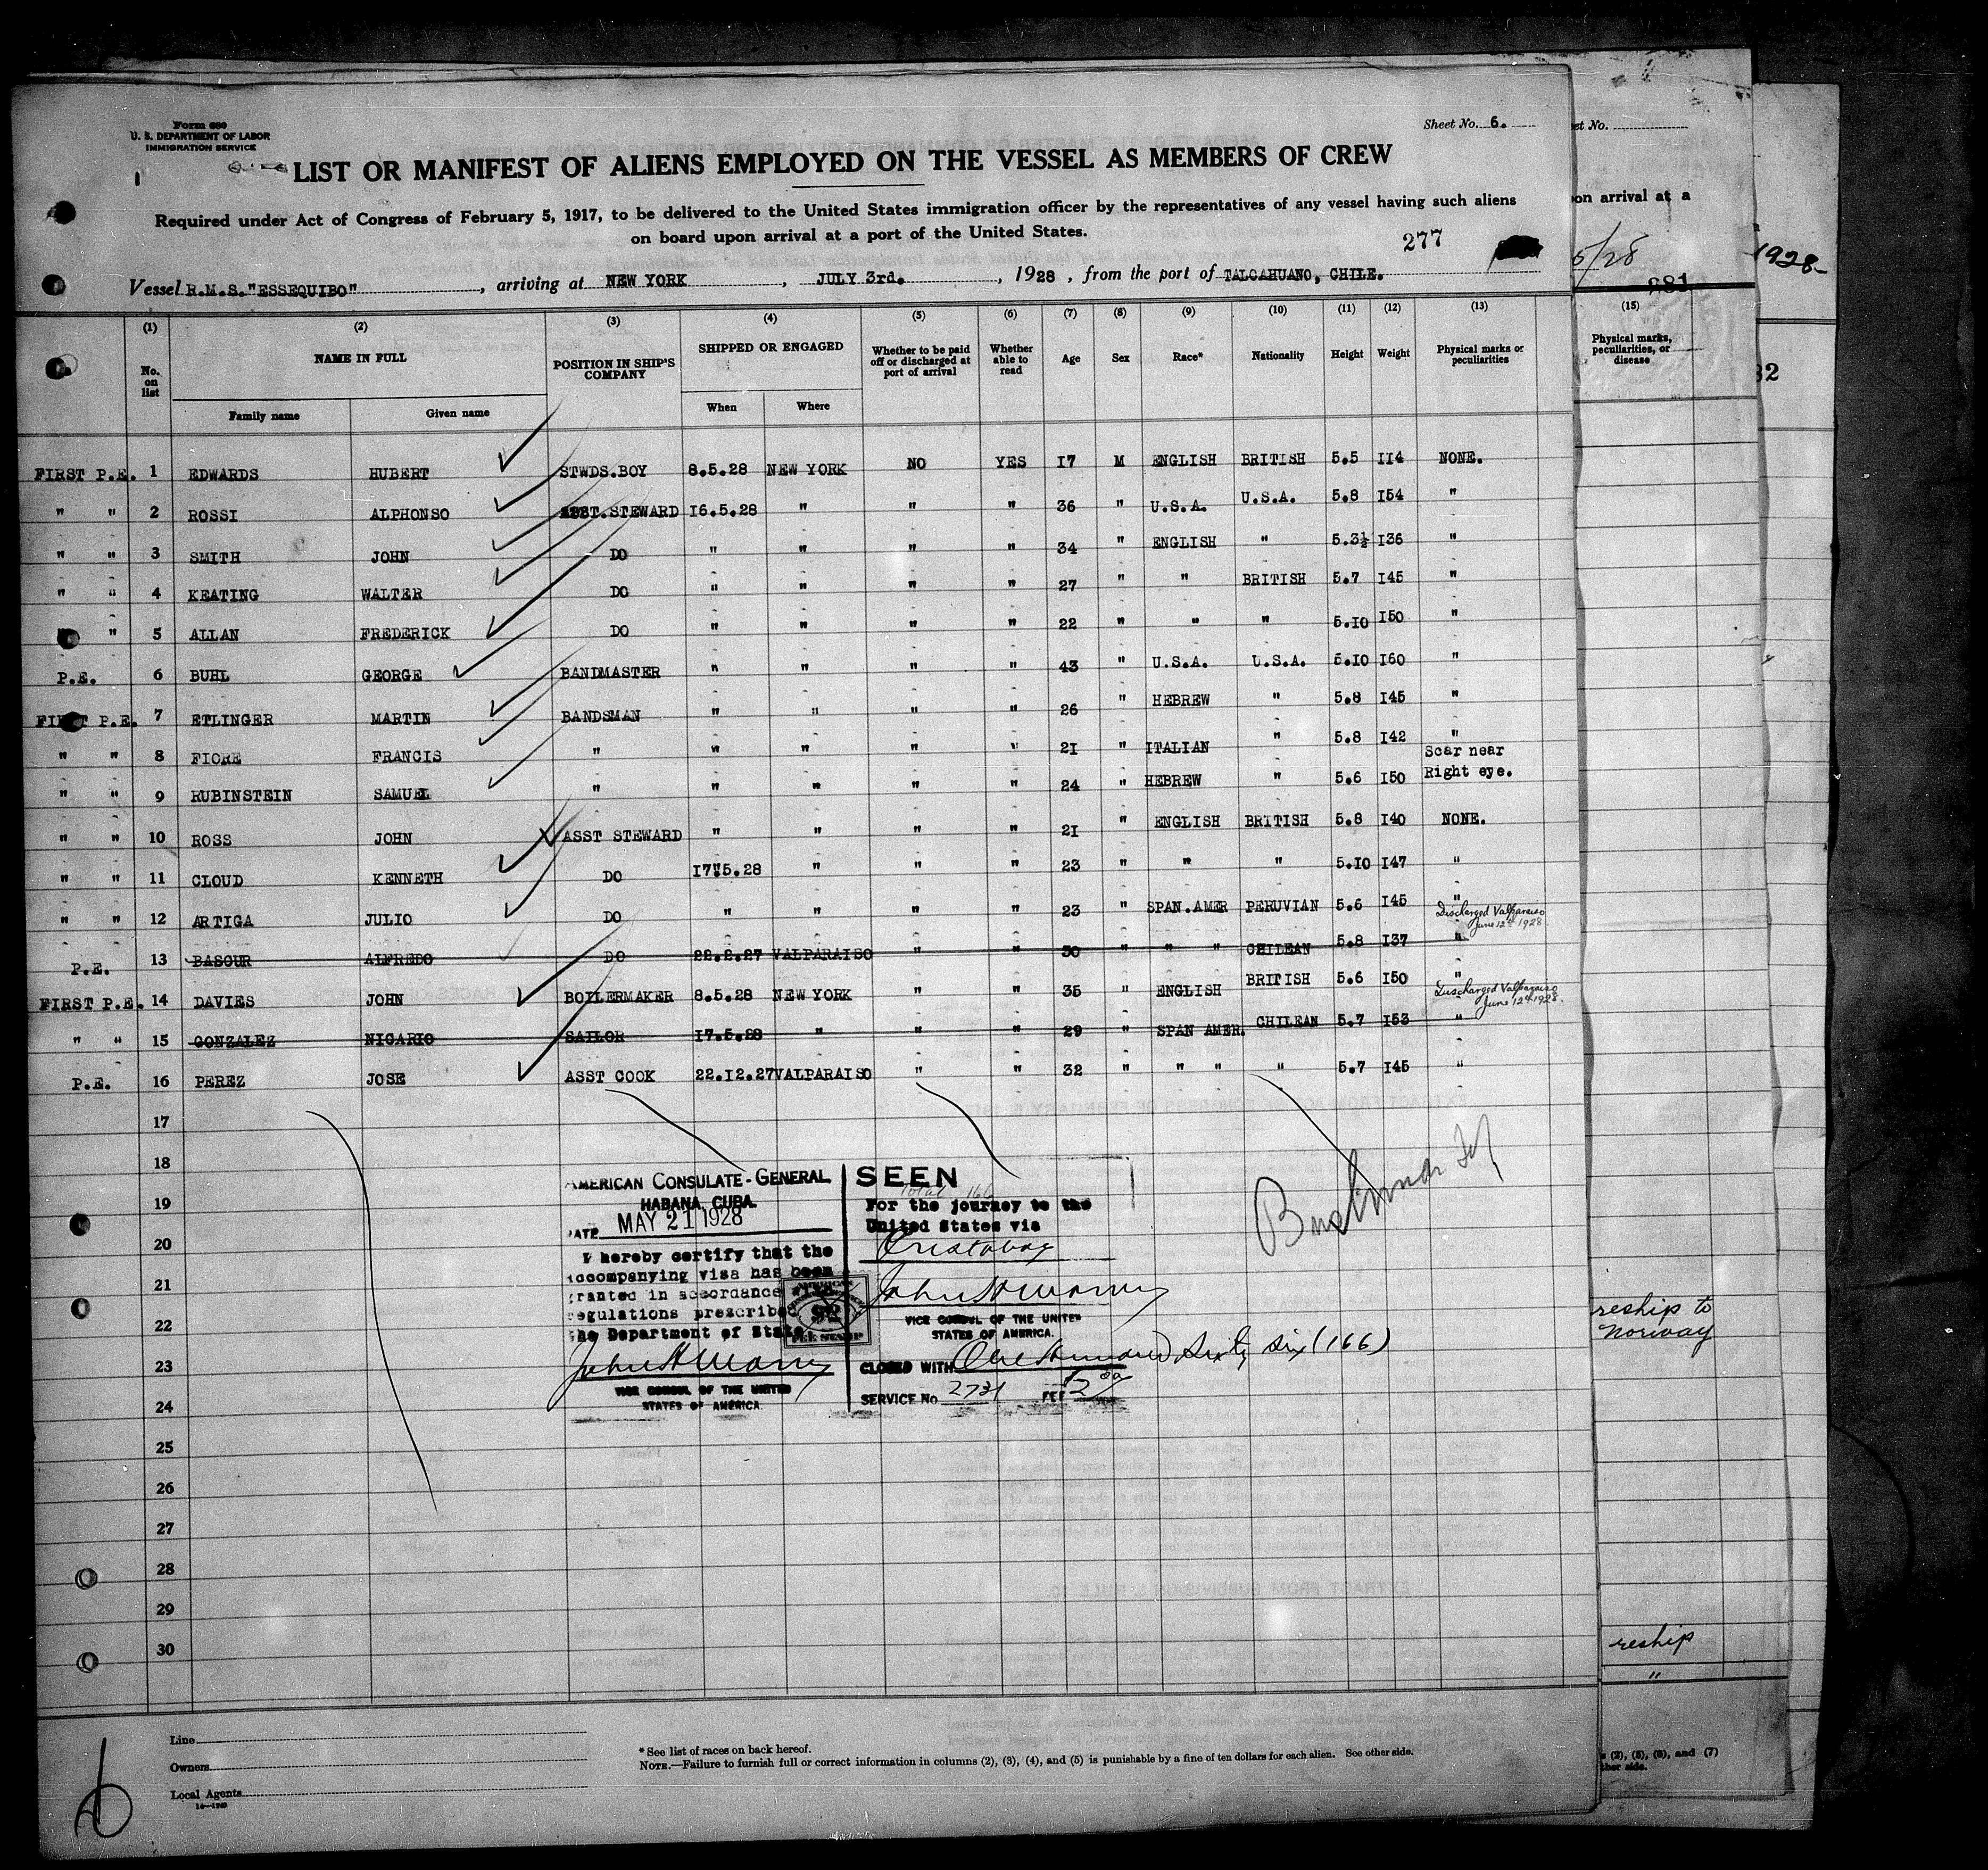 Form 680
U. S. DEPARTMENT OF LABOR
IMMIGRATION SERVICE
Sheet No. 6.
LIST OR MANIFEST OF ALIENS EMPLOYED ON THE VESSEL AS MEMBERS OF CREW
Required under Act of Congress of February 5, 1917, to be delivered to the United States immigration officer by the representatives of any vessel having such aliens
on board upon arrival at a port of the United States.
277
Vessel R.M.S. "ESSEQUIBO", arriving at NEW YORK, JULY 3rd., 1928, from the port of TALCAHUANO, CHILE.
(1) (2) (3) (4) (5) (6) (7) (8) (9) (10) (11) (12) (13)
No. on list NAME IN FULL POSITION IN SHIP'S COMPANY SHIPPED OR ENGAGED Whether to be paid off or discharged at port of arrival Whether able to read Age Sex Race* Nationality Height Weight Physical marks or peculiarities
Family name Given name When Where
FIRST P.E. 1 EDWARDS HUBERT STWDS.BOY 8.5.28 NEW YORK NO YES 17 M ENGLISH BRITISH 5.5 114 NONE.
" " 2 ROSSI ALPHONSO ASST.STEWARD 16.5.28 " " " 36 " U.S.A. U.S.A. 5.8 154 "
" " 3 SMITH JOHN DO " " " " 34 " ENGLISH " 5.3½ 136 "
" " 4 KEATING WALTER DO " " " " 27 " " BRITISH 5.7 145 "
" " 5 ALLAN FREDERICK DO " " " " 22 " " " 5.10 150 "
P.E. 6 BUHL GEORGE BANDMASTER " " " " 43 " U.S.A. U.S.A. 5.10 160 "
FIRST P.E. 7 ETLINGER MARTIN BANDSMAN " " " " 26 " HEBREW " 5.8 145 "
" " 8 FIORE FRANCIS " " " " " 21 " ITALIAN " 5.8 142 "
" " 9 RUBINSTEIN SAMUEL " " " " " 24 " HEBREW " 5.6 150 Scar near Right eye.
" " 10 ROSS JOHN ASST STEWARD " " " " 21 " ENGLISH BRITISH 5.8 140 NONE.
" " 11 CLOUD KENNETH DO 17.5.28 " " " 23 " " " 5.10 147 "
" " 12 ARTIGA JULIO DO " " " " 23 " SPAN.AMER PERUVIAN 5.6 145 "
Discharged Valparaiso June 12th 1928
P.E. 13 BASOUR ALFREDO DO 22.2.27 VALPARAISO " " 30 " " " CHILEAN 5.8 137 "
FIRST P.E. 14 DAVIES JOHN BOILERMAKER 8.5.28 NEW YORK " " 35 " ENGLISH BRITISH 5.6 150 "
Discharged Valparaiso June 12th 1928.
" " 15 GONZALEZ NICARIO SAILOR 17.5.28 " " " 29 " SPAN AMER. CHILEAN 5.7 153 "
P.E. 16 PEREZ JOSE ASST COOK 22.12.27 VALPARAISO " " 32 " " " " 5.7 145 "
17
18
19
20
21
22
23
24
25
26
27
28
29
30
AMERICAN CONSULATE-GENERAL
HABANA, CUBA.
DATE MAY 21 1928
I hereby certify that the
accompanying visa has been
granted in accordance with
regulations prescribed
the Department of State
VICE CONSUL OF THE UNITED
STATES OF AMERICA.
FEE STAMP
SEEN
Total 166
For the journey to the
United States via
Cristobal
VICE CONSUL OF THE UNITED
STATES OF AMERICA.
CLOSED WITH One Hundred Sixty Six (166)
SERVICE No. 2731 FEE $2.00
Line
Owners
Local Agents
* See list of races on back hereof.
NOTE.—Failure to furnish full or correct information in columns (2), (3), (4), and (5) is punishable by a fine of ten dollars for each alien. See other side.
et No.
on arrival at a
5/28
1928-
681
(15)
Physical marks,
peculiarities, or
disease
32
reship to
Norway
reship
"
(2), (5), (6), and (7)
ther side.